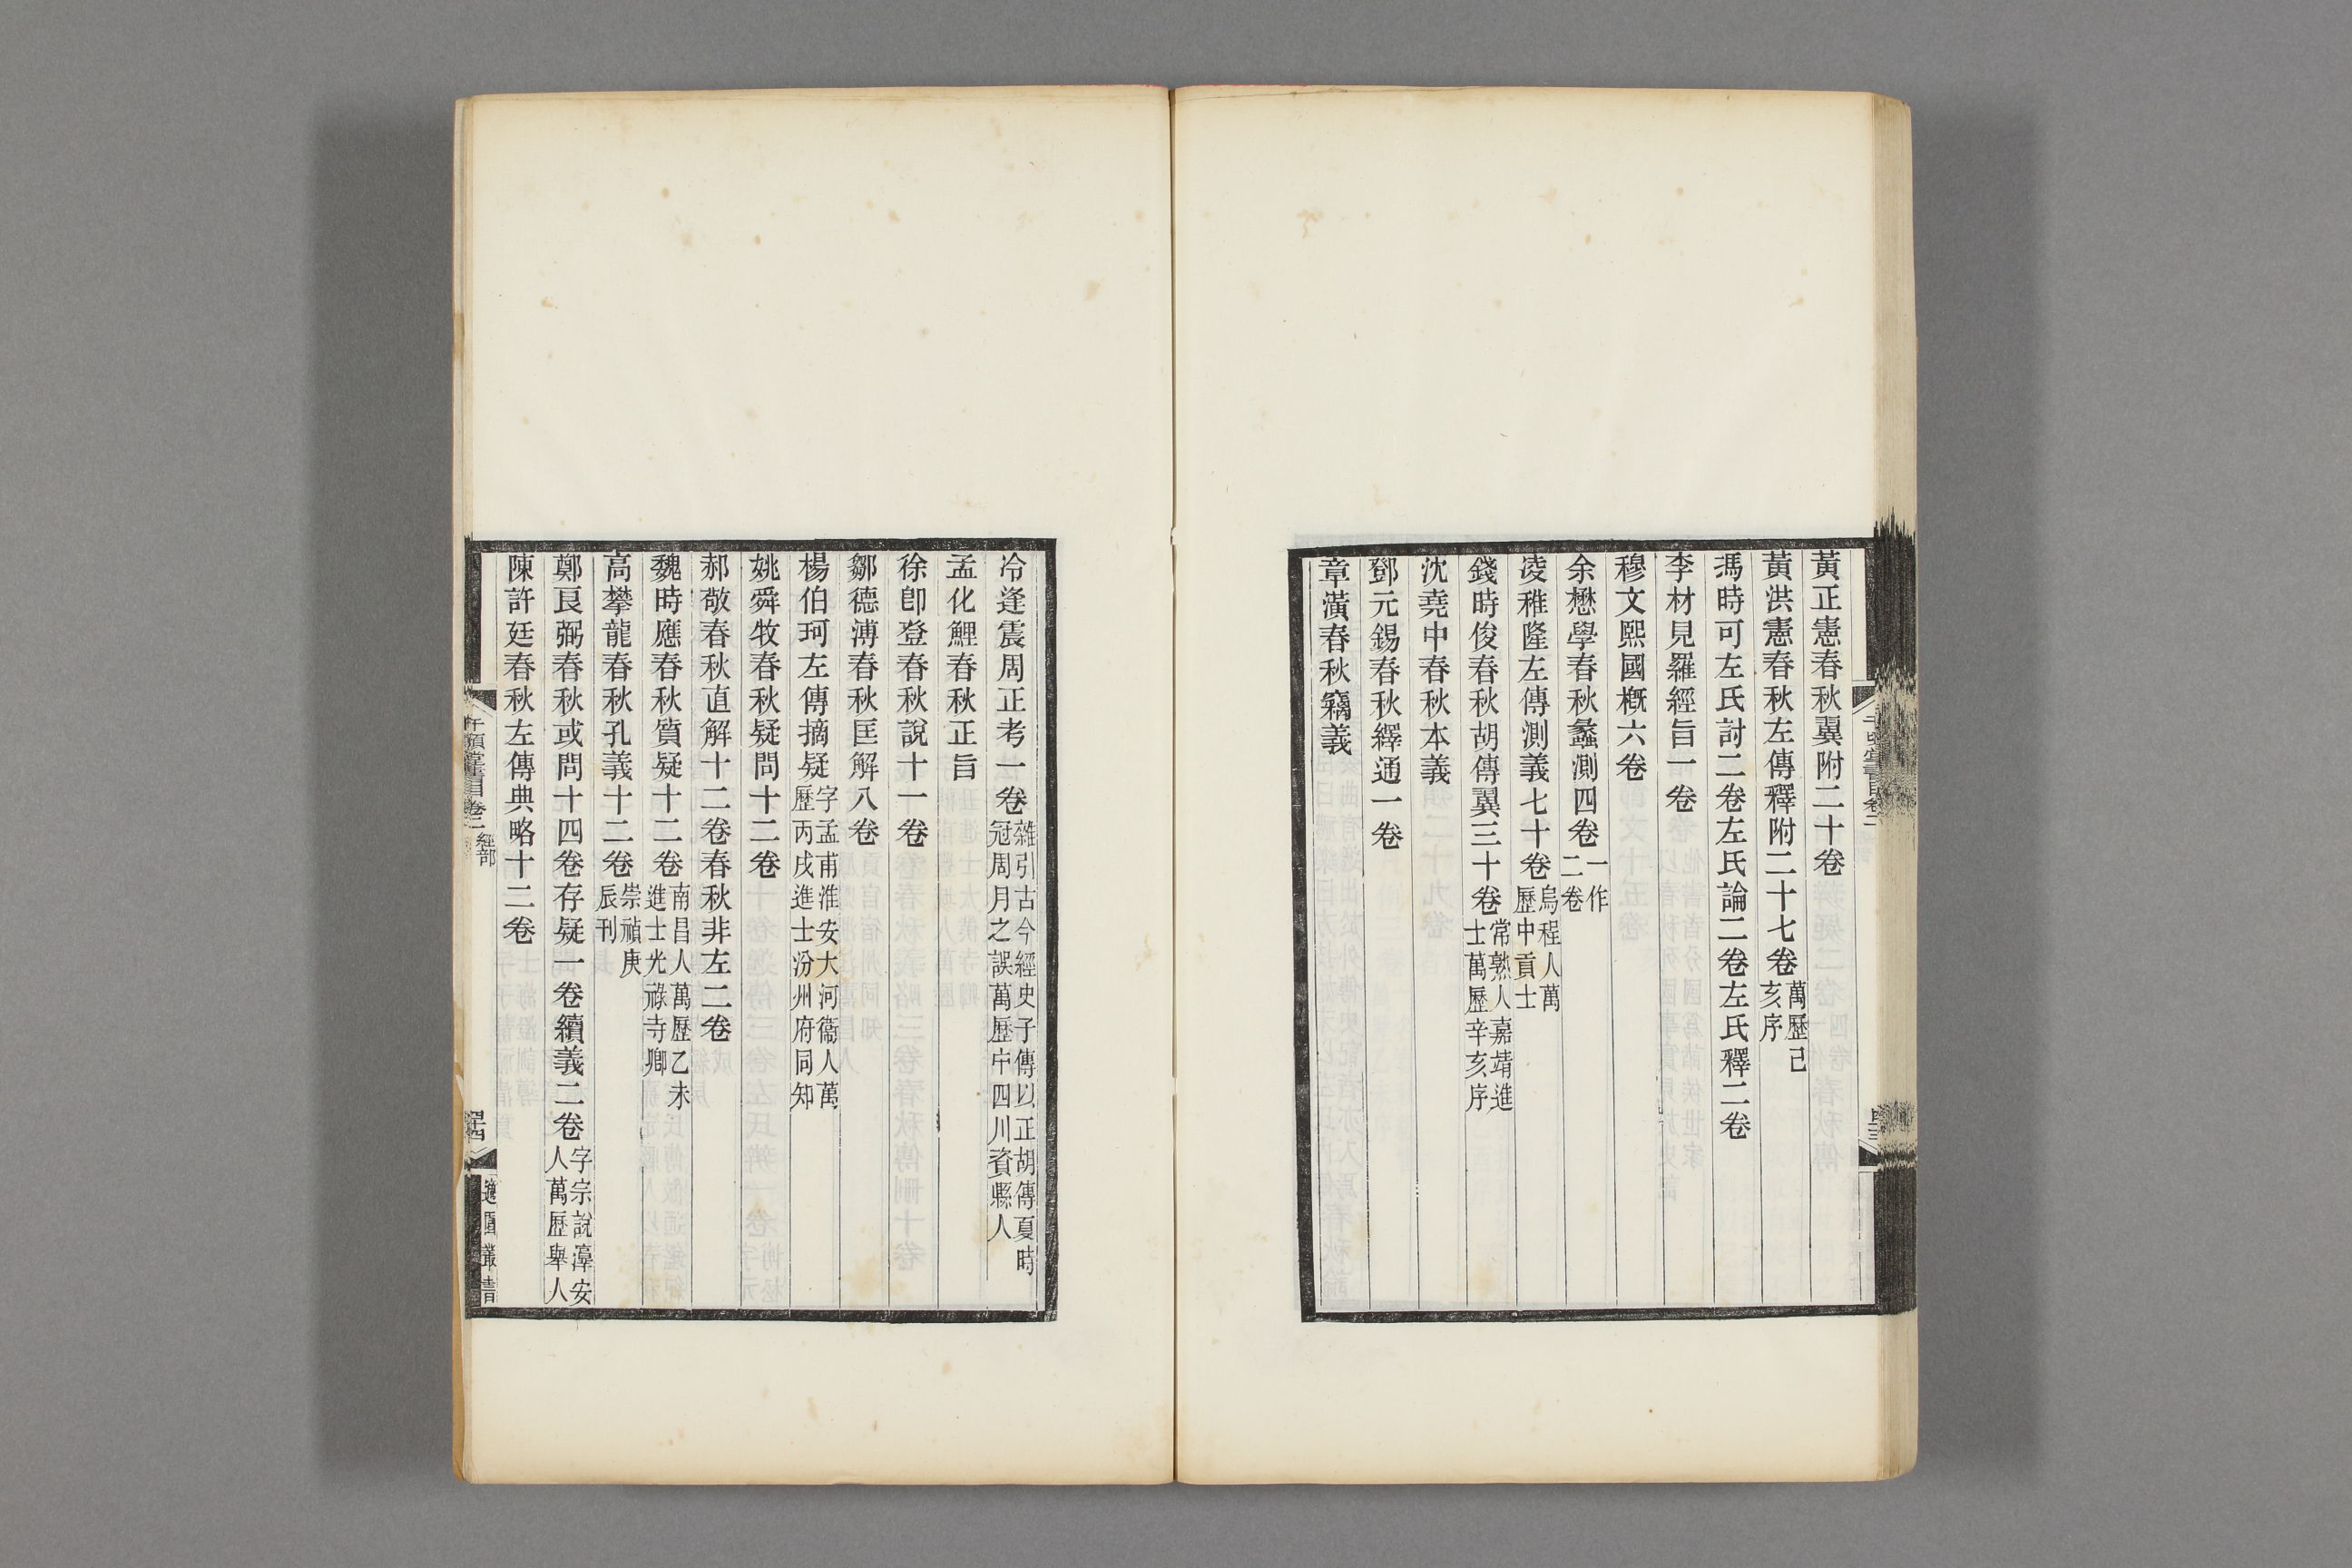 黃正憲春秋翼附二十卷
黃洪憲春秋左傳釋附二十七卷萬歷己亥序
馮時可左氏討二卷左氏論二卷左氏釋二卷
李材見羅經旨一卷
穆文熙國概六卷
余懋學春秋蠡測四卷一作二卷
淩稚隆左傳測義七十卷烏程人萬歷中貢士
錢時俊春秋胡傳翼三十卷常熟人嘉靖進士萬歷辛亥序
沈堯中春秋本義
鄧元錫春秋繹通一卷
章潢春秋竊義
冷逢震周正考一卷雜引古今經史子傳以正胡傳夏時冠周月之誤萬歷中四川資縣人
孟化鯉春秋正旨
徐卽登春秋說十一卷
鄒德溥春秋匡解八卷
楊伯珂左傳摘疑字孟甫淮安大河衞人萬歷丙戌進士汾州府同知
姚舜牧春秋疑問十二卷
郝敬春秋直解十二卷春秋非左二卷
魏時應春秋質疑十二卷南昌人萬歷乙未進士光祿寺卿
高攀龍春秋孔義十二卷崇禎庚辰刊
鄭良弼春秋或問十四卷存疑一卷續義二卷字宗說淳安人萬歷舉人
陳許廷春秋左傳典略十二卷
千頃堂書目卷二 經部
四十四
適園叢書